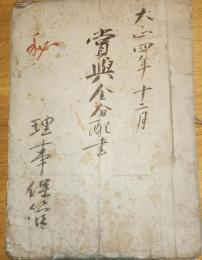 大正四年十二月
賞與金分配書
秘
理事保管